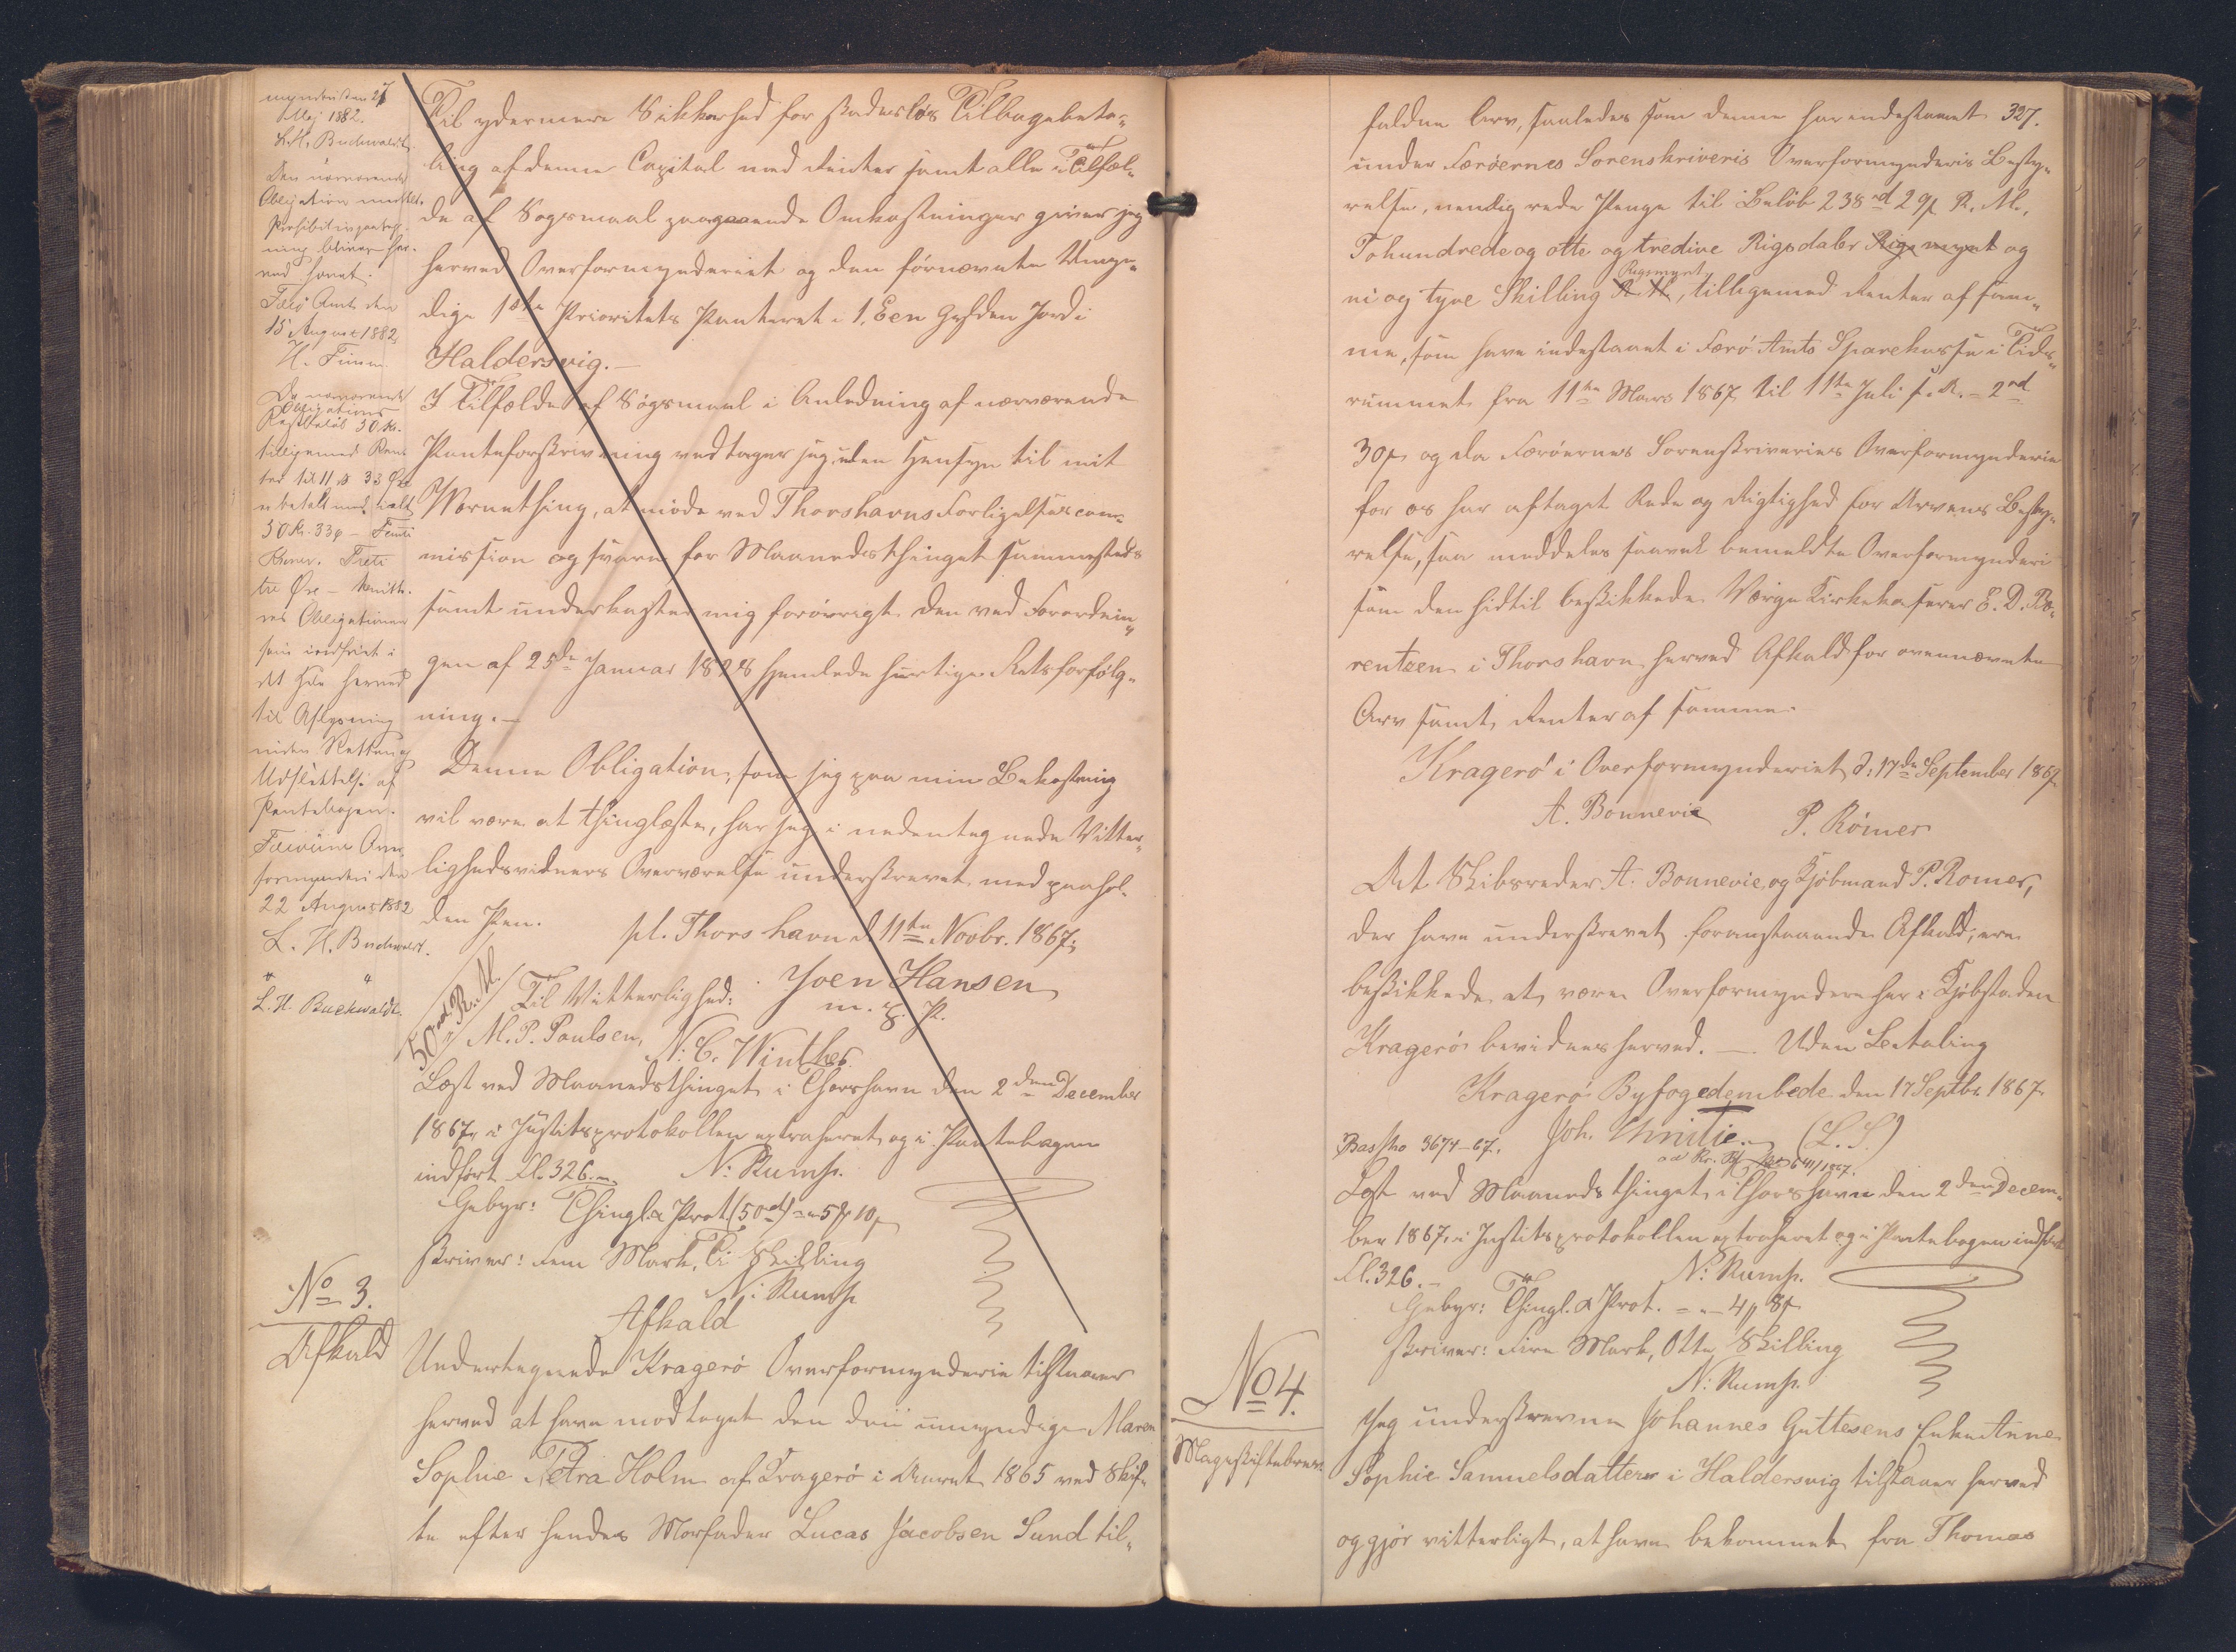 myndristen 27
Maj 1882.
L. H. Buchwaldt.
Den nærværende
Obligation meddelt
Prohibitivpaateg-
ning bliver her-
ved hævet.
Færø Amt den
15 August 1882,
H. Finsen
Da nærværende
Obligations
Restbeløb 50 Kr.
tilligemed Ren-
ter til 11 33 Øre
er betalt med ialt
50 Kr. 33 ø – Femti
Kroner. Treti
tre Øre –
res Obligationen
som indfriet i
det Hele herved
til Aflysning
inden Retten og
Udslettelse af
Pantebogen.
Færöerne Over-
formynderi den
22 August 1882
L. H. Buchwaldt.
L. H. Buchwaldt.
Til ydermere Sikkerhed for skadesløs Tilbagebeta-
ling af denne Capital med Renter samt alle i Tilfæl-
de af Søgsmaal paagaaende Omkostninger giver jeg
herved Overformynderiet og den førnævnte Umyn-
dige 1ste Prioritets Panteret i 1, Een Gylden Jord i
Haldersvig.–
I Tilfælde af Søgsmaal i Anledning af nærværende
Panteforskrivning vedtager jeg, uden Hensyn til mit
Værnething, at møde ved Thorshavns Forligelsescom-
mission og svare for Maanedsthinget sammesteds
samt underkaster mig forøvrigt den ved Forordnin-
gen af 25de Januar 1828 hjemlede hurtige Retsforfølg-
ning.–
Denne Obligation, som jeg paa min Bekostning
vil være at thinglæste, har jeg i nedentegnede Vitter-
lighedsvidners Overværelse underskrevet med paahol-
den Pen.
pl. Thorshavn d 11te Novbr. 1867.
Joen Hansen
m. P.
Til Vitterlighed:
50rd R.M.
M. P. Poulsen, N: C. Winther
Læst ved Maanedsthinget i Thorshavn den 2den December
1867, i Justitsprotokollen extraheret og i Pantebogen
indført Fl. 326.–
N: Rump.
Gebyr: Thingl. & Prot. (50rd) = " 5 10
skriver: Fem Mark, Ti Skilling
N: Rump
No 3.
Afkald
Afkald
Undertegnede Kragerö Overformynderie tilstaaer
herved at have modtaget den den umyndige Maren
Sophie Petra Holm af Kragerö i Aaret 1865 ved Skif-
te efter hendes Morfader Lucas Jacobsen Sund til-
327.
faldne Arv, saaledes som denne har indestaaet
under Færöernes Sorenskriveris Overformynderis Besty-
relse, nemlig rede Penge til Beløb 238rd 29 R. M.,
Tohundrede og otte og tredive Rigsdaler Rigsmynt og
Rigsmynt
ni og tyve Skilling R. M., tilligemed Renter af sam-
me, som have indestaaet i Færö Amts Sparekasse i Tids-
rummet fra 11te Marts 1867 til 11te Juli s. A. – 2rd
30 og da Færöernes Sorenskriveries Overformynderie
for os har aflagt Rede og Rigtighed for Arvens Besty-
relse, saa meddeles saavel bemeldte Overformynderi
som den hidtil beskikkede Værge Kirkekasserer E. D. Bæ-
rentsen i Thorshavn herved Afkald for ovennævnte
Arv samt Renter af samme.
Kragerö i Overformynderiet, d: 17de September 1867
A. Bonnevie P. Römer
At Skibsreder A. Bonnevie og Kjöbmand P. Romer,
der have underskrevet foranstaaende Afkald, ere
beskikkede at være Overformyndere her i Kjöbstaden
Kragerö bevidnes herved. — Uden Betaling
Kragerö Byfogedembede den 17 Septbr. 1867
Joh. Christie. (L. S.)
3674–67.
Læst ved Maanedsthinget i Thorshavn den 2den Decem-
ber 1867, i Justitsprotokollen extraheret og i Pantebogen indført
Fl. 326.–
N: Rump.
Gebyr: Thingl. & Prot. = " – 4 8
skriver: Fire Mark, Otte Skilling
N: Rump.
No 4.
Mageskiftebrev.
Jeg underskrevne Johannes Guttesens Enke Anne
Sophie Samuelsdatter i Haldersvig tilstaaer herved
og gjör vitterligt, at have bekommet fra Thomas